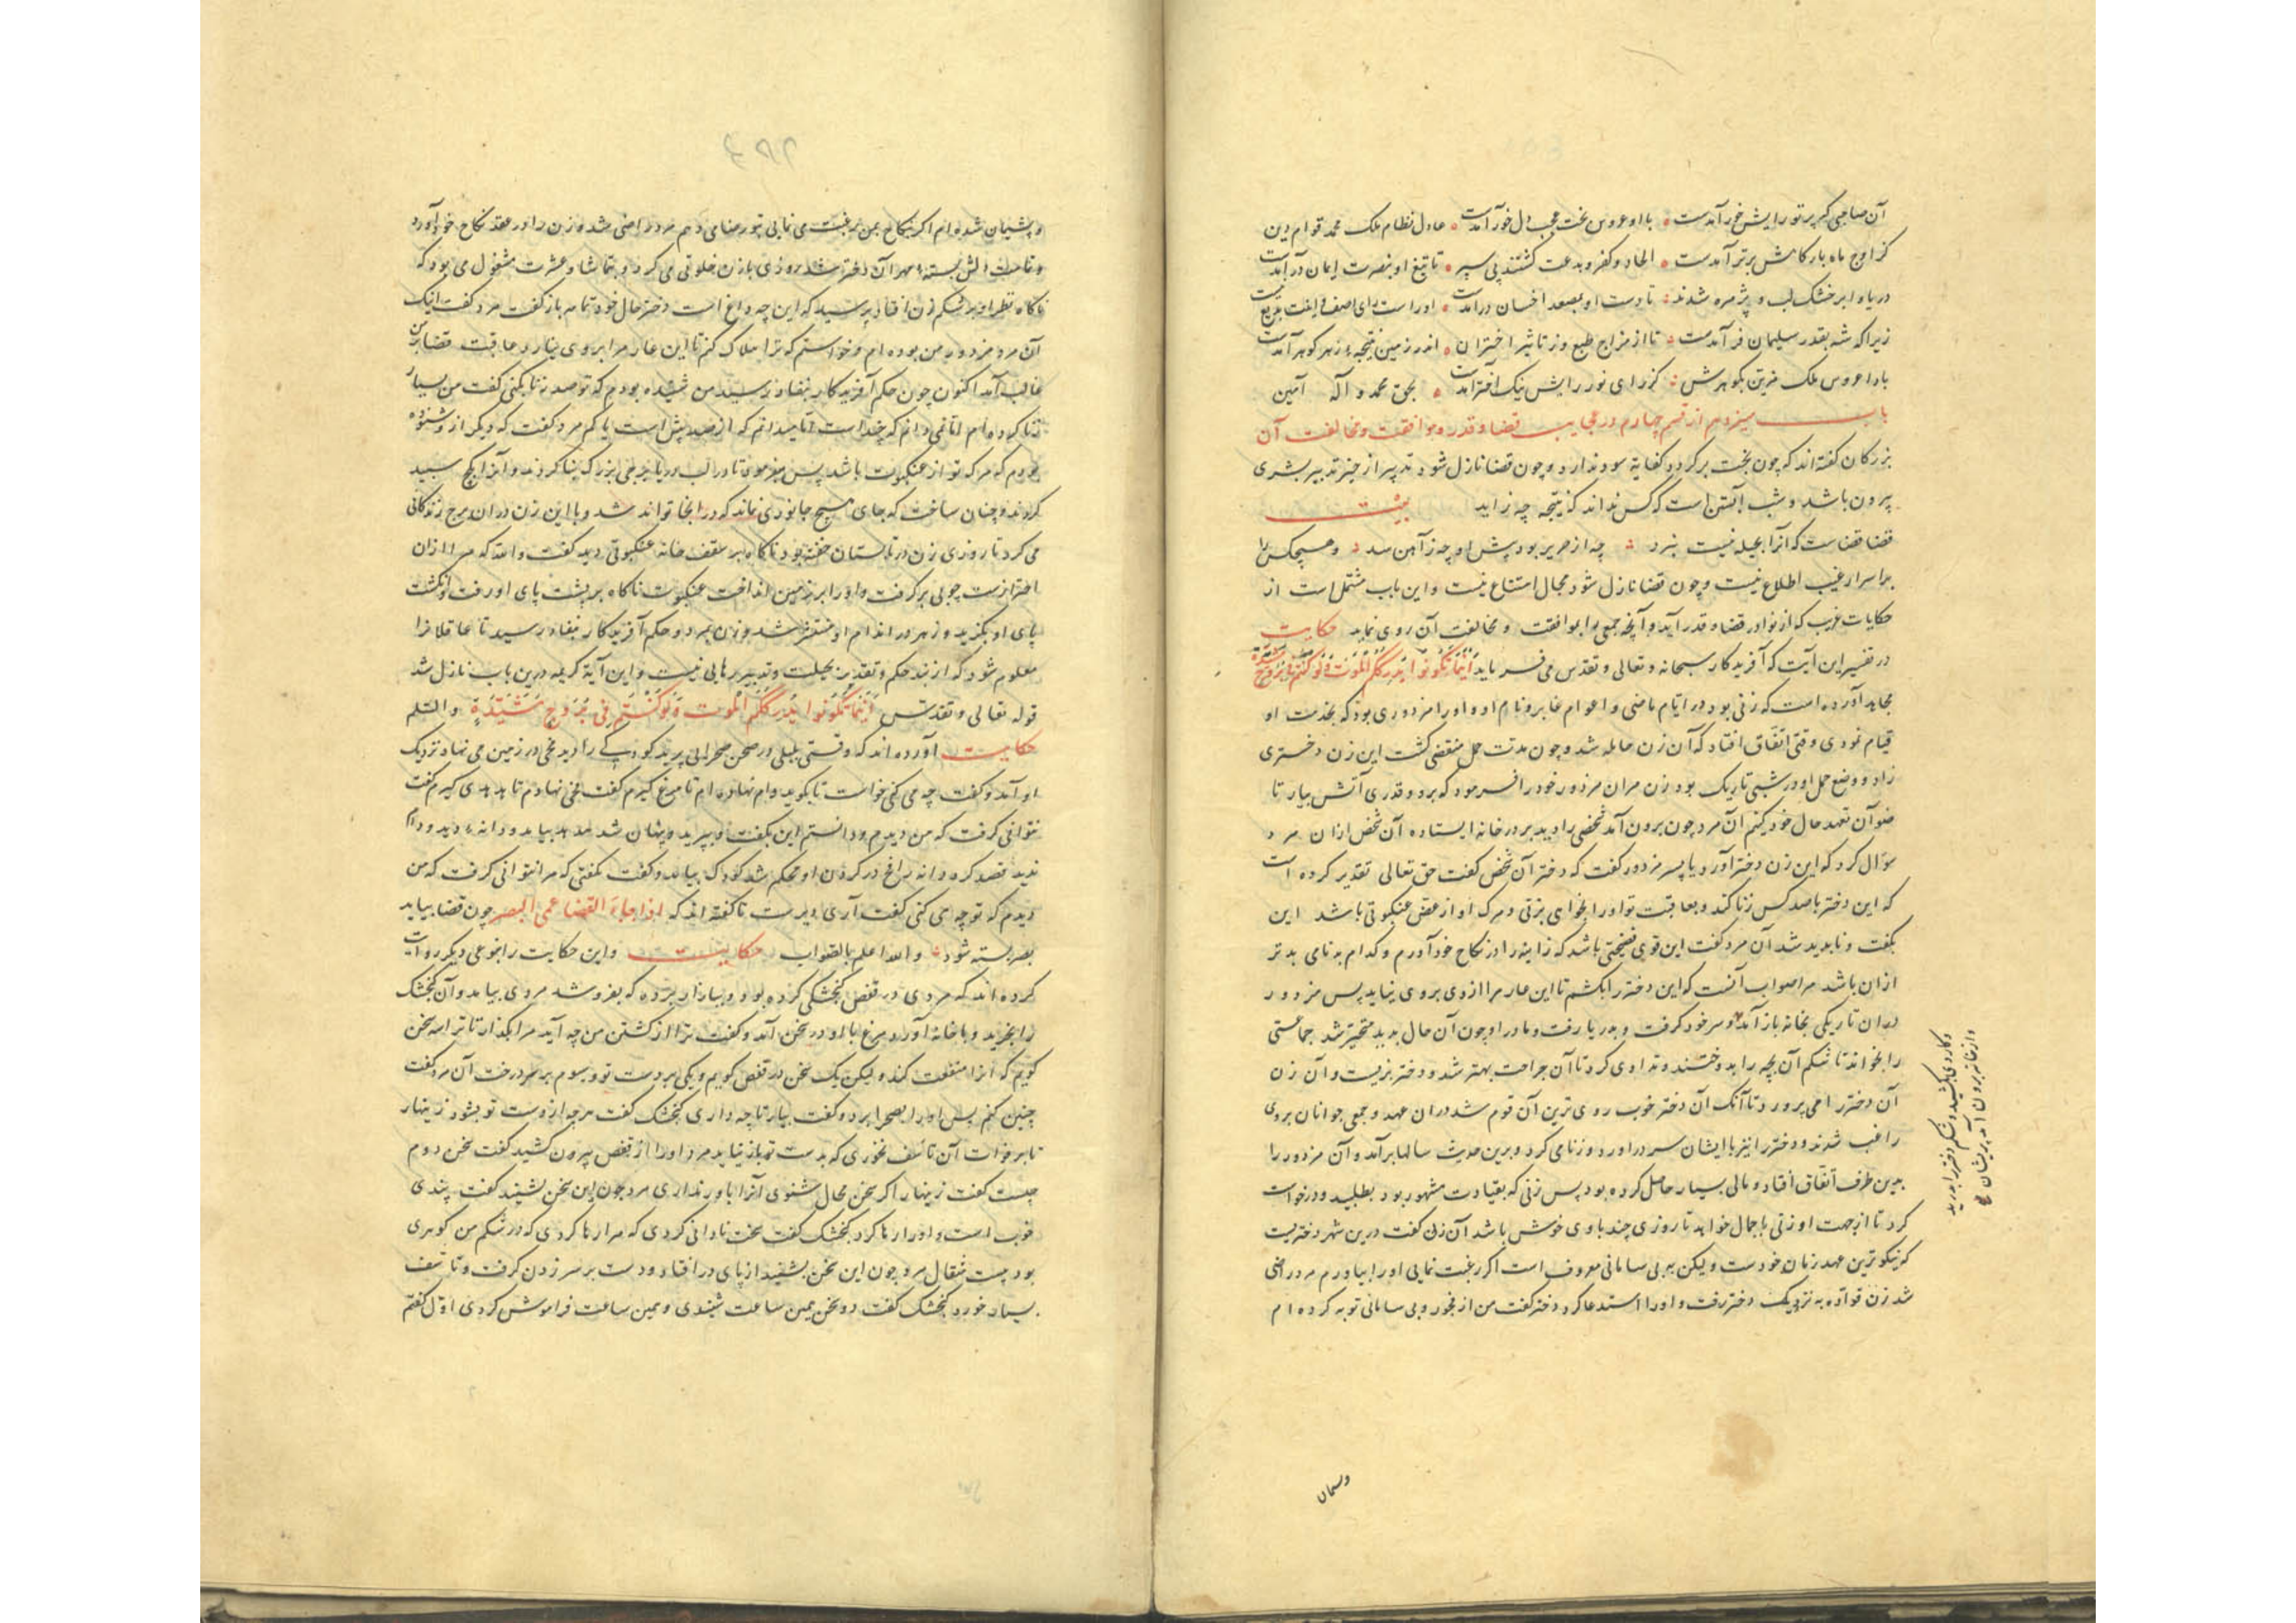 آن صاحبی که پرتو رایش خور آمدست • با او عروس بخت عجب دل خور آمدست • عادل نظام ملک محمد قوام دین
کز اوج ماه بار کامش برتر آمدست • الحاد و کفر و بدعت کشتند پی سپر • تا تیغ او بنصرت ایمان در آمدست
دریا و ابر خشک لب و پژمره شدند • تا دست او بمصعد احسان درآمدست • او راست رای آصف
زیرا که شه بقدر سلیمان فر آمدست • تا از مزاج طبع وز تاثیر اختران • اندر زمین نتیجهٔ زهر کوهر آمدست
بادا عروس ملک مزین بکوهرش • کز رای نور رایش نیک اختر آمدست • بحق محمد و آله آمین
باب سیزدهم از قسم چهارم در عجایب قضا و قدر و موافقت و مخالفت آن
بزرکان کفته اند که چون بخت برکردد کفایة سود ندارد و چون قضا نازل شود تدبیر از حیز تدبیر بشری
بیرون باشد و شب آبستن است کس نداند که نتیجه چه زاید بیت
قضا قضاست که آنرا بحیله نیست بنرد • چه از حریر بود پیش او چه ز آهن سد • و هیچکس را
بر اسرار غیب اطلاع نیست و چون قضا نازل شود مجال امتناع نیست و این باب مشتمل است از
حکایات غریب که از نوادر قضا و قدر آید و آنچه جمعی را بموافقت و مخالفت آن روی نماید حکایت
در تفسیر این آیت که آفریدکار سبحانه و تعالی و تقدس می فرماید أینما تکونوا یدرککم الموت ولو کنتم فی بروج مشیدة
مجاهد آورده است که زنی بود در ایام ماضی و اعوام غابر و نام او و او را مزدوری بود که بخدمت او
قیام نمودی وقتی اتفاق افتاد که آن زن حامله شد و چون مدت حمل منقضی کشت این زن دختری
زاد و وضع حمل او در شبی تاریک بود زن مر آن مزدور خود را فرمود که برو و قدری آتش بیار تا
ضو آن تعهد حال خود کنم آن مرد چون برون آمد شخصی را دید بر در خانه ایستاده آن شخص ازان مرد
سؤال کرد که این زن دختر آورد یا پسر مزدور کفت که دختر آن شخص کفت حق تعالی تقدیر کرده است
که این دختر با صد کس زنا کند و بعاقبت تو او را بخواهی بزنی و مرک او از عض عنکبوتی باشد این
بکفت و ناپدید شد آن مرد کفت این قوی فضیحتی باشد که زانیه را در نکاح خود آورم و کدام بدنامی بدتر
ازان باشد مرا صواب آنست که این دختر را بکشم تا این عار مرا ازوی بروی نیاید پس مزدور
دران تاریکی بخانه باز آمد و سر خود کرفت و بدریا رفت و مادر او چون آن حال بدید متحیر شد جماعتی
را بخواند تا شکم آن بچه را بدوختند و تداوی کرد تا آن جراحت بهتر شد و دختر بزیست و آن زن
آن دختر را می پرورد تا آنک آن دختر خوب روی ترین آن قوم شد دران عهد و جمعی جوانان بروی
راغب شدند و دختر را نیز با ایشان سر در آورد و زنا می کرد و برین حدیث سالها برآمد و آن مزدور را
بدین طرف اتفاق افتاد و مالی بسیار حاصل کرده بود پس زنی که بقیادت مشهور بود بطلبید و درخواست
کرد تا از جهت او زنی با جمال خواهد تا روزی چند باوی خوش باشد آن زن کفت درین شهر دختریست
که نیکوترین عهد زنان خودست ولیکن به بی سامانی معروف است اکر رغبت نمایی او را بیاورم مرد راضی
شد زن قوّاده به نزدیک دختر رفت و او را استدعا کرد دختر کفت من از فجور و بی سامانی توبه کرده ام
و کاردی بکشید و شکم دختر را بدرید
و از خانه برون آمد پریشان
و پشیمان
و پشیمان شده ام اکر بنکاح بمن رغبت می نمایی تو رضای دهم مرد راضی شد و زن را در عقد نکاح خود آورد
و عاقبت دلش بستهٔ مهر آن دختر شد روزی با زن خلوتی می کرد و بتماشا و عشرت مشغول می بود که
ناکاه نظر او بر شکم زن افتاد پرسید که این چه داغ است دختر حال خود تمام باز کفت مرد کفت اینک
آن مرد مزدور من بوده ام و خواستم که ترا هلاک کنم تا این عار مرا بروی نیارد و عاقبت قضا بر من
غالب آمد اکنون چون حکم آفریدکار بنفاذ رسید من شنیده بودم که تو صد زنا بکنی کفت من بسیار
زنا کرده ام اما نمی دانم که چند است اما میدانم که از صد بیش است یا کم مرد کفت که دیکر از و شنوده
بودم که مرک تو از عنکبوت باشد پس بفرمود تا در لب دریا برجی بزرک بنا کردند و آنرا بکج سپید
کردند و چنان ساخت که جای هیچ جانوری نماند که در انجا تواند شد و با این زن در ان برج زندکانی
می کرد تا روزی زن در تابستان خفته بود ناکاه بر سقف خانه عنکبوتی دید کفت والله که مرا ازان
احترازست چوبی برکرفت و او را بر زمین انداخت عنکبوت ناکاه بر پشت پای او رفت و انکشت
پای او بکزید و زهر در اندام او منتشر شد و زن بمرد و حکم آفریدکار بنفاذ رسید تا عاقلانرا
معلوم شود که از بند حکم و تقدیر بحیلت و تدبیر رهایی نیست و این آیة کریمه درین باب نازل شد
قوله تعالی و تقدس أینما تکونوا یدرککم الموت ولو کنتم فی بروج مشیّدة والسّلم
حکایت آورده اند که وقتی بلبلی در صحن صحرایی پرید کودکی را دید فخی در زمین می نهاد نزدیک
او آمد و کفت چه می کنی خواست تا بکوید دام نهاده ام تا مرغ کیرم کفت فخی نهادم تا هدهدی کیرم کفت
نتوانی کرفت که من دیدم و دانستم این بکفت و بپرید و پنهان شد هدهد بیامد و دانه دید و دام
ندید قصد کرد دانه را فخ در کردن او محکم شد کودک بیامد و کفت نکفتی که مرا نتوانی کرفت که من
دیدم که تو چه می کنی کفت آری دیرست تا کفته اند که اذا جاء القضا عمی البصر چون قضا بیاید
بصر بسته شود • والله اعلم بالصواب حکایت و این حکایت را بنوعی دیکر روایت
کرده اند که مردی در قفص کنجشکی کرده بود و ببازار برده که بفروشد مردی بیامد و آن کنجشک
را بخرید و با خانه آورد مرغ با او در سخن آمد و کفت ترا از کشتن من چه آید مرا بکذار تا ترا سه سخن
کویم که ترا منفعت کند ولیکن یک سخن در قفص کویم و یکی بر دست تو و سوم بر سر درخت آن مرد کفت
چنین کنم پس او را بصحرا برد و کفت بیار تا چه داری کنجشک کفت هرچه از دست تو بشود زینهار
تا بر فوات آن تأسف نخوری که بدست تو باز نیاید مرد او را از قفص بیرون کشید کفت سخن دوم
چیست کفت زینهار اکر سخن محال شنوی آنرا باور نداری مرد چون این سخن بشنید کفت پندی
خوب است و او را رها کرد کنجشک کفت سخت نادانی کردی که مرا رها کردی که در شکم من کوهری
بود بیست مثقال مرد چون این سخن بشنید از پای در افتاد و دست بر سر زدن کرفت و تأسف
بسیار خورد کنجشک کفت دو سخن همین ساعت شنیدی و همین ساعت فراموش کردی اوّل کفتم